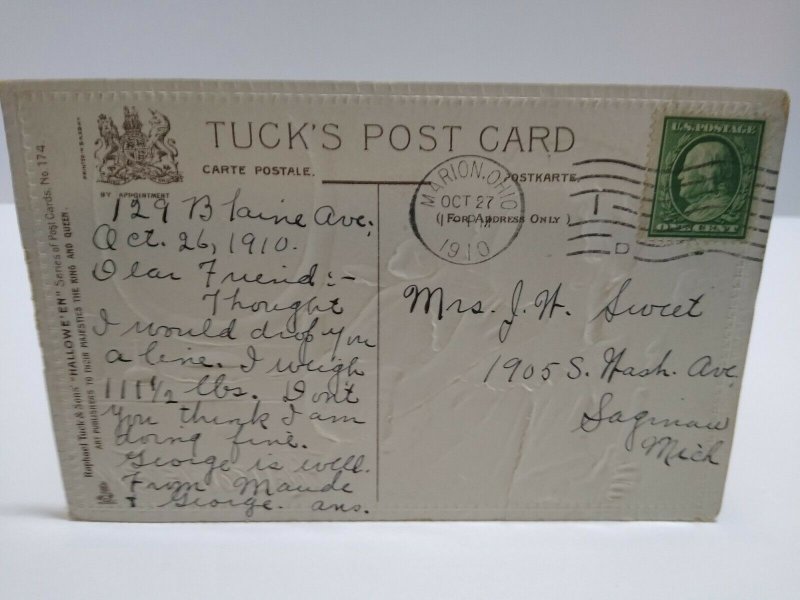 TUCK'S POST CARD
CARTE POSTALE.
POSTKARTE
BY APPOINTMENT
(FOR ADDRESS ONLY)
MARION, OHIO
OCT 27
1910
U.S. POSTAGE
ONE CENT
129 Blaine Ave.
Oct. 26, 1910.
Dear Friend:-
Thought
I would drop you
a line. I weigh
111 1/2 lbs. Don't
you think I am
doing fine.
George is well.
From Maude
& George. ans.
Mrs. J. W. Sweet
1905 S. Wash. Ave.
Saginaw
Mich
Raphael Tuck & Sons' "HALLOWE'EN" Series of Post Cards. No. 174.
ART PUBLISHERS TO THEIR MAJESTIES THE KING AND QUEEN.